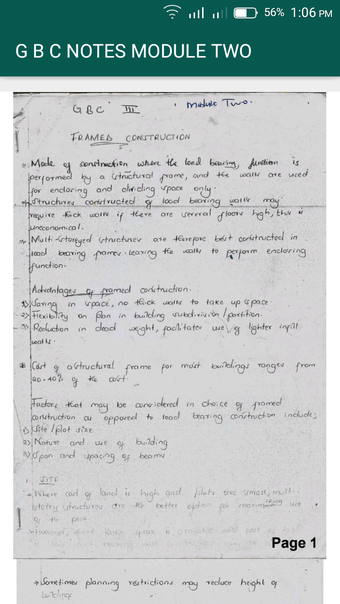 56% 1:06 PM
G B C NOTES MODULE TWO
GBC III Module Two.
FRAMED CONSTRUCTION
Mode of construction where the load bearing function is
performed by a structural frame, and the walls are used
for enclosing and dividing space only.
Structures constructed of load bearing walls may
require thick walls if there are several floors high, this is
uneconomical.
Multi-storeyed structures are therefore best constructed in
load bearing frames leaving the walls to perform enclosing
function.
Advantages of framed construction.
1) Saving in space, no thick walls to take up space
2) Flexibility on plan in building subdivision / partition.
3) Reduction in dead weight, facilitates use of lighter infill
walls.
* Cost of a structural frame for most buildings ranges from
20-40% of the cost.
Factors that may be considered in choice of framed
construction as opposed to load bearing construction include;
1) Site / plot size
2) Nature and use of building
3) Span and spacing of beams
1. SITE
Where cost of land is high and plots are small, multi
storey structures are the better option for maximum use
of the
space is available and cost of
Page 1
→ Sometimes planning restrictions may reduce height of
buildings